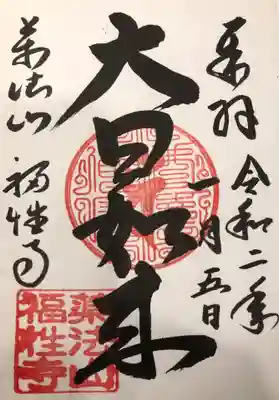 奉拝 令和二年
一月五日
大日如来
薬法山 福性寺
薬法山
福性寺